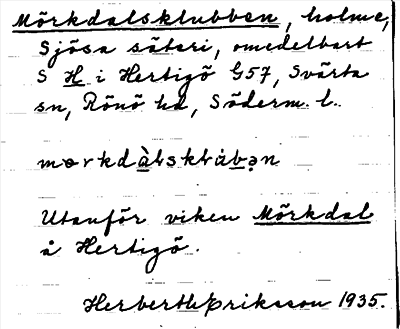 Mörkdalsklubben, holme,
Sjösa säteri, omedelbart
S H i Hertigö G57, Svärta
sn, Rönö hd, Söderm. l.
mœrkdàlsklubən
Utanför viken Mörkdal
å Hertigö.
Herbert Eriksson 1935.